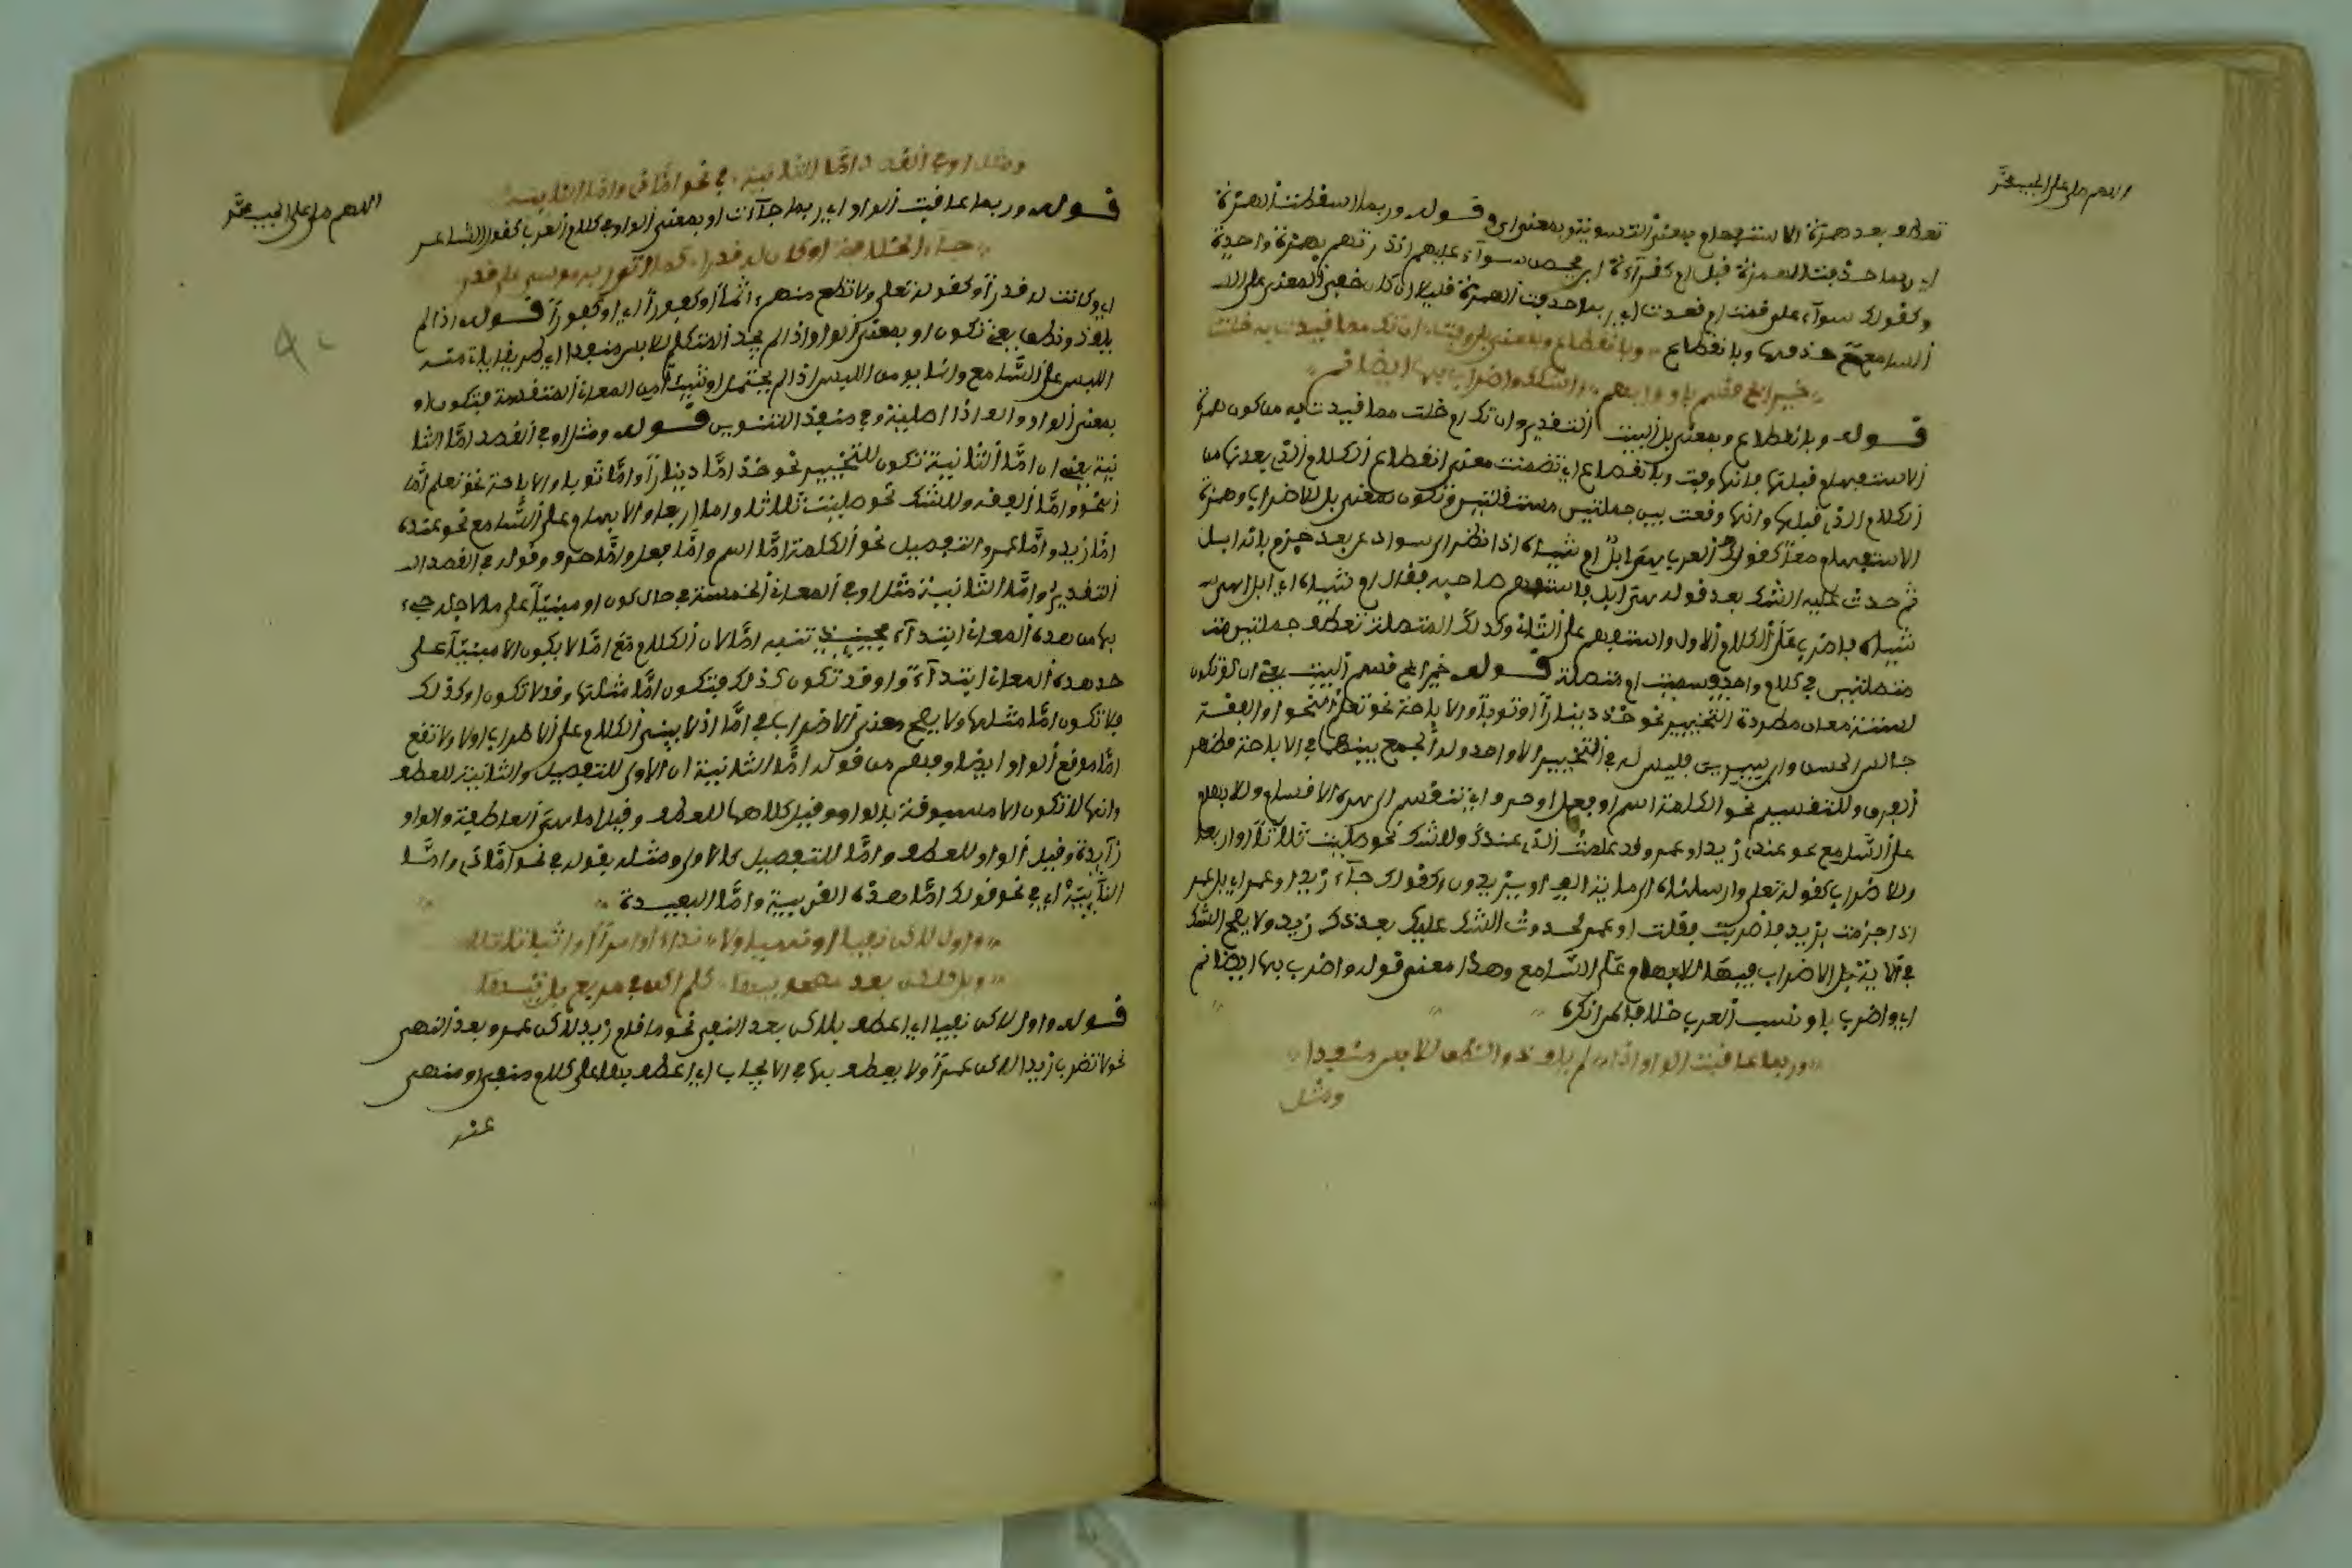 اللهم صل على الحبيب محمد
تعطف بعد همزة الاستفهام وبمعنى التسوية وبمعنى اي وقوله وربما اسقطت الهمزة
اي ربما حذفت الهمزة قبل ام كقراءة ابن محيصن سواء عليهم انذرتهم بهمزة واحدة
وكقولك سواء علي قمت ام قعدت اي ربما حذفت الهمزة قبل ام ان كان خفا المعنى على
السامع حذفها وبانقطاع وبانقطاع وبمعنى بل وفت ان تك مما قيدت به خلت
خير ابح قسم باو وابهم واشكك واضراب بها ايضا نم
قوله وبانقطاع وبمعنى بل البيت التقدير وان تك ام خلت مما قيدت به من كون همزة
الاستفهام قبلها فانها وفت وبانقطاع اي تضمنت معنى انقطاع الكلام الذي بعدها من
الكلام الذي قبلها وانها وقعت بين جملتين مستقلتين وتكون بمعنى بل للاضراب وهمزة
الاستفهام معا كقول العرب هي ابل ام شياه اذا نظر الى سواد عن بعد جزم بانه ابل
ثم حدث عليه الشك بعد قوله هي ابل فاستفهم صاحبه فقال ام شياه اي ابل هي
شياه فاضرب على الكلام الاول واستفهم على الثاني وكذلك المتصلة تعطف جملتين
متصلتين في كلام واحد وسميت ام متصلة قوله خير ابح قسم البيت يعني ان او تكون
لستة معان مطردة التخيير نحو خذ دينارا او ثوبا والاباحة نحو تعلم النحو او الفقه
جالس الحسن وابن سيرين فليس له في التخيير الا واحد وله الجمع بينهما في الاباحة فظهر
الفرق وللتقسيم نحو الكلمة اسم او فعل او حرف اي تنقسم الى هذه الاقسام وللابهام
على السامع نحو عندي زيد او عمرو وقد علمت الذي عندك وللشك نحو صليت ثلاثا او اربعا
وللاضراب كقوله تعلى وارسلناه الى مائة الف او يزيدون وكقولك جاء زيد او عمرو اي بل عمرو
اذا جزمت بزيد فاضربت فقلت او عمرو لحدوث الشك عليك بعد ذكر زيد ولا يصح الشك
واضرب بها ايضا نم
اي واضرب باو ونسب العرب خلافا لمن انكره
وربما عاقبت الواو اذا لم يلف ذو النطق للبس منفذا
ومثل
اللهم صل على الحبيب محمد
ومثل او في القصد اما الثانية في نحو اما ذي واما النائية
قوله وربما عاقبت الواو اي ربما جاءت او بمعنى الواو في كلام العرب كقول الشاعر
جاء الخلافة او كانت له قدرا كما اتى ربه موسى على قدر
اي وكانت له قدرا وكقوله تعلى ولا تطع منهم اثما او كفورا اي وكفورا قوله اذا لم
يلف ذو نطق يعني تكون او بمعنى الواو اذا لم يجد المتكلم للبس منفذا اي طريقا يلتبس منه
اللبس على السامع وانما يومن اللبس اذا لم يحتمل او شيئا من المعاني المتقدمة فتكون او
بمعنى الواو والف اذا اصلية وفي منفذ التنوين قوله ومثل او في القصد اما الثا
نية يعني ان اما الثانية تكون للتخيير نحو خذ اما دينارا واما ثوبا وللاباحة نحو تعلم اما
النحو واما الفقه وللشك نحو صليت اما ثلاثا واما اربعا وللابهام على السامع نحو عندي
اما زيد واما عمرو والتفصيل نحو الكلمة اما اسم واما فعل واما حرف وقوله في القصد
التقدير واما الثانية مثل او في المعاني الخمسة في حال كون او مبنيا على ما لاجله جيء
بها من هذه المعاني ابتداء فحينئذ تشبه اما لان الكلام مع اما لا يكون الا مبنيا على
احد هذه المعاني ابتداء واو قد تكون كذلك فتكون اما مثلها وقد لا تكون او كذلك
فلا تكون اما مثلها ولا يصح معنى الاضراب في اما اذ لا يبنى الكلام على الاضراب اولا ولا تقع
اما موقع الواو ايضا وفهم من قوله اما الثانية ان الاولى للتفصيل والثانية للعطف
وانها لا تكون الا مسبوقة بالواو وقيل كلاهما للعطف وقيل اما هي العاطفة والواو
زائدة وقيل الواو للعطف واما للتفصيل كالاولى ومثله بقوله في نحو اما ذي واما
النائية اي في نحو قولك اما هذه القريبة واما البعيدة
واول لاكن نفيا او نهيا ولا نداء او امرا او اثباتا تلا
وبل كلاكن بعد مصحوبيها كلم اكن في مربع بل تيها
قوله واول لاكن نفيا اي اعطف بلاكن بعد النفي نحو ما قام زيد لاكن عمرو وبعد النهي
نحو لا تضرب زيدا لاكن عمرا ولا يعطف بها في الايجاب اي اعطف بها على كلام منفي او منهي
عنه